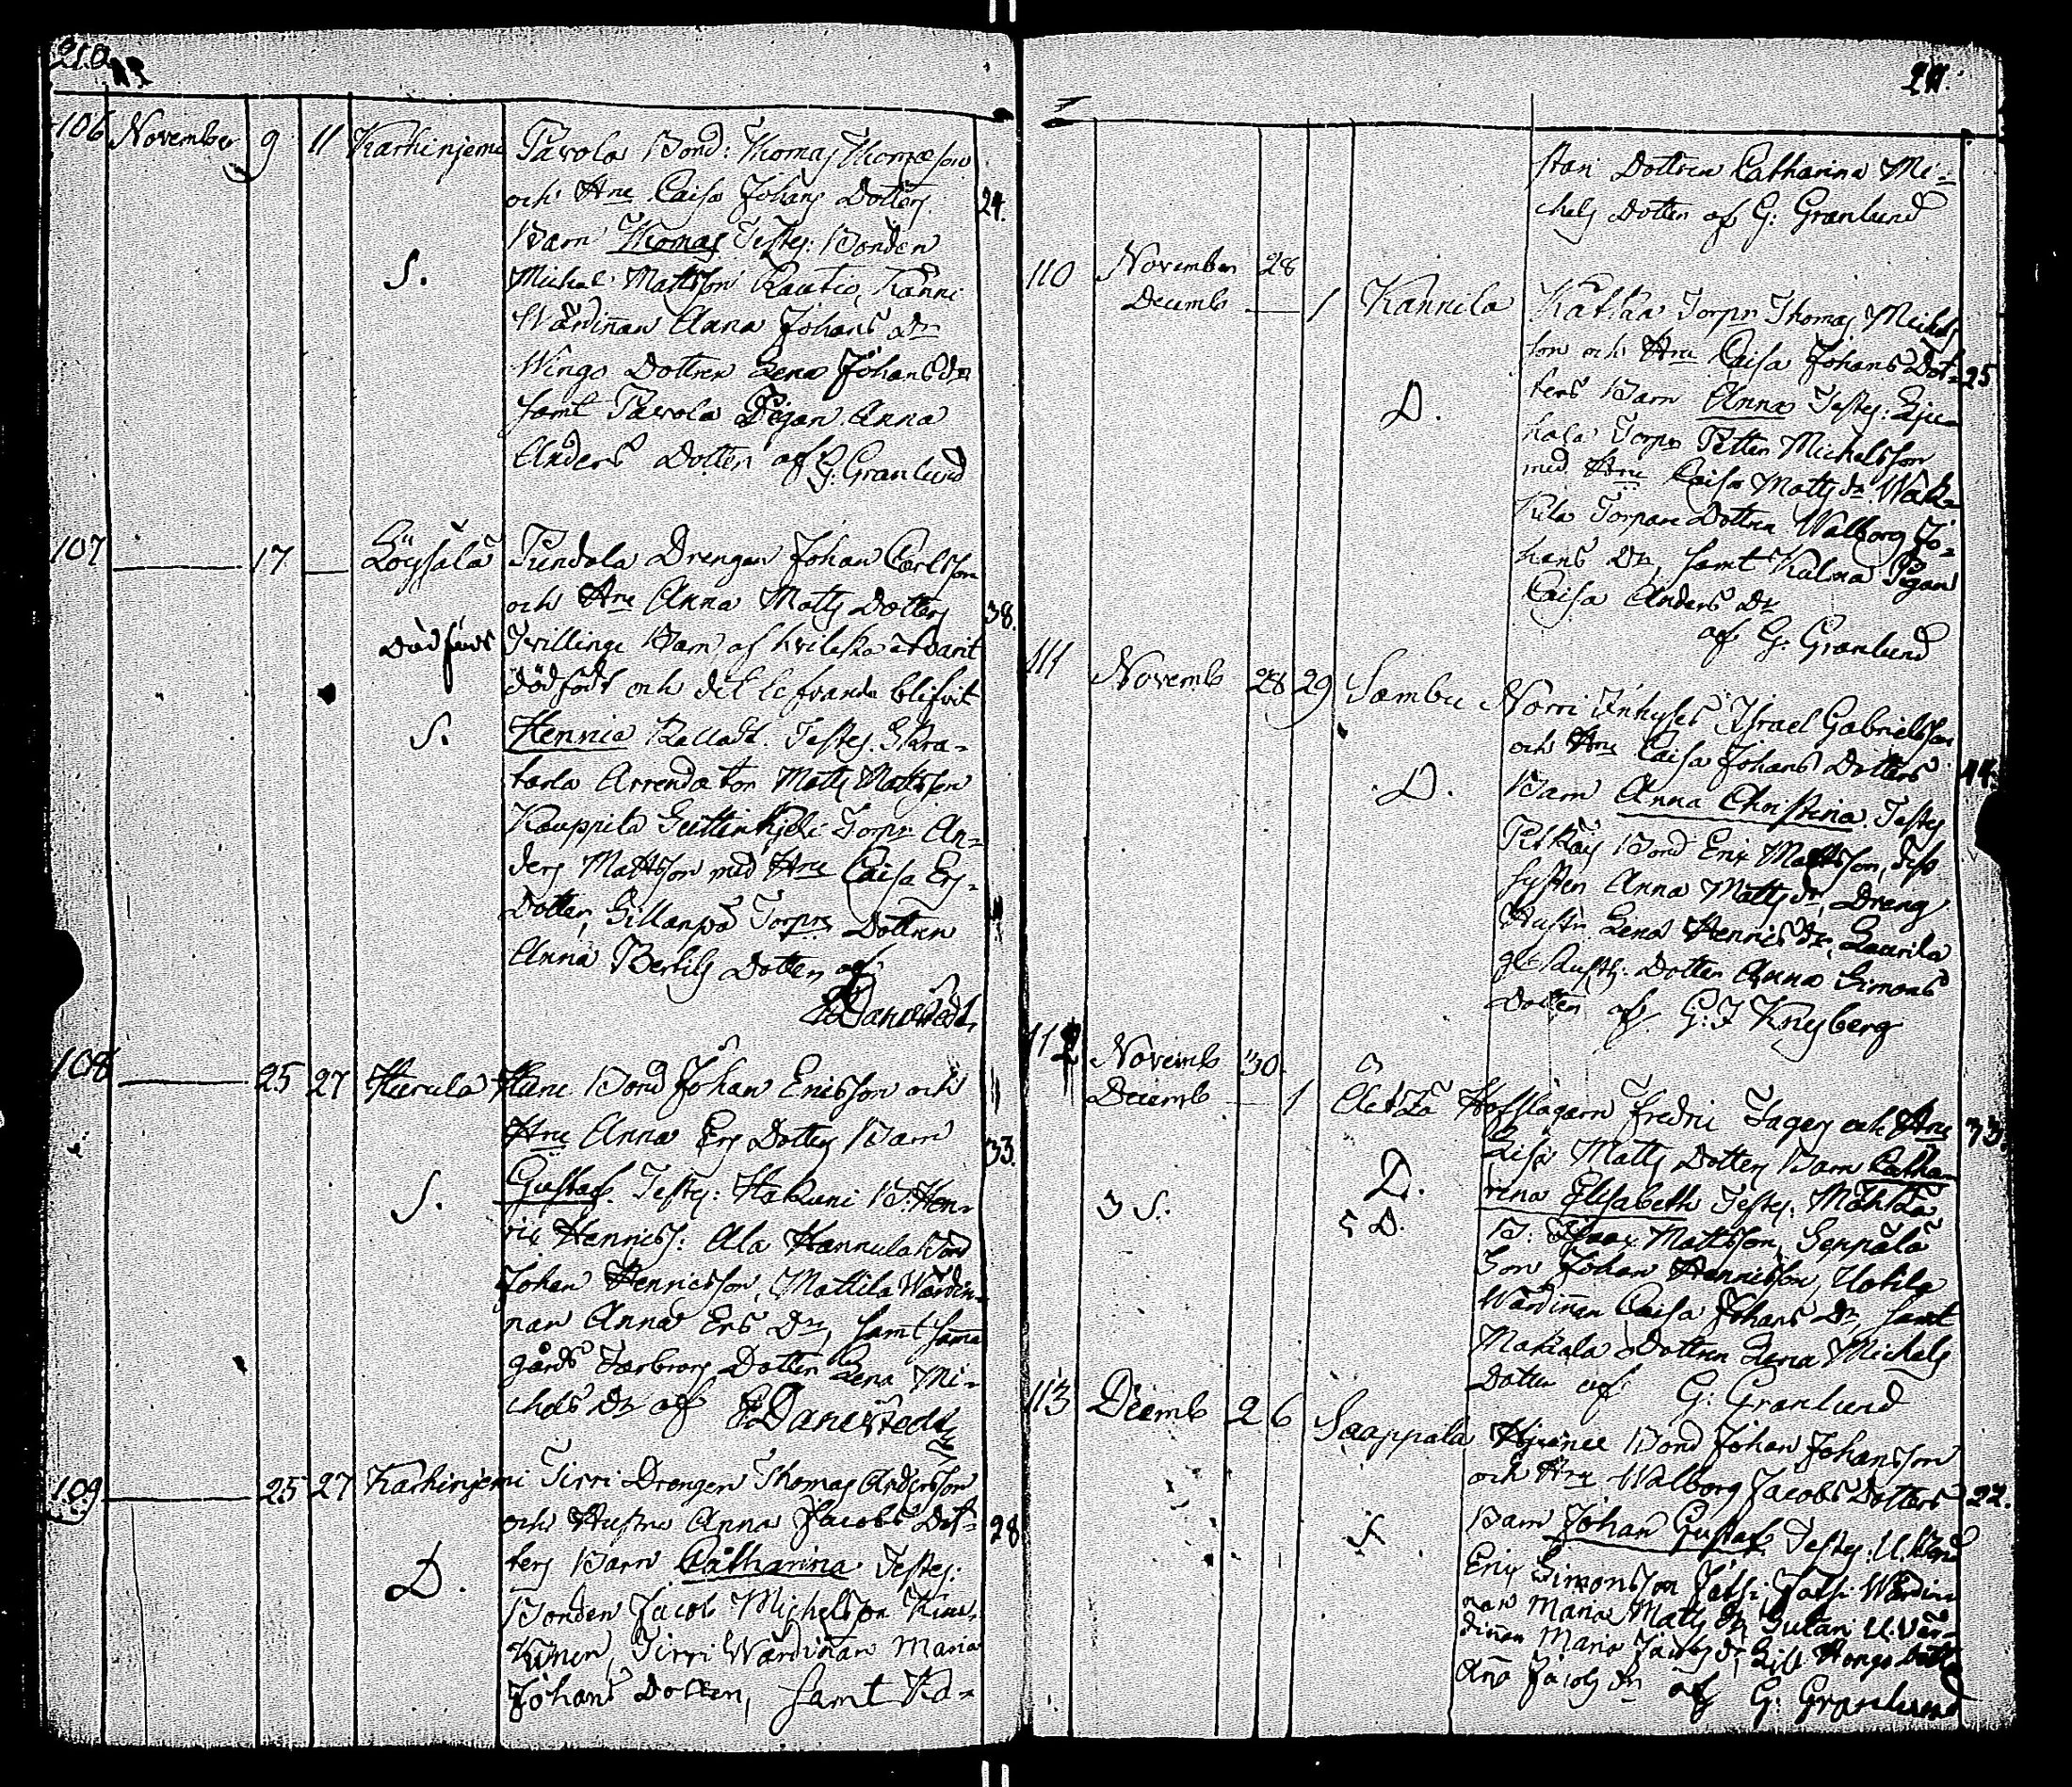 210
106 November 9 11 Karhinjemi Pavola Bond: Thomas Thomæson
och Hru Caisa Johans Dotters 24.
Barn Thomas Testes: Bonden
S. Michel Mattsson Rautio, Känni
Wärdiñan Anna Johans Dr
Wingo Dottren Lena Johans dr
samt Pavola Pigan Anna
Anders Dotter af G: Granlund
107 17 Löyssälä Pundola Drengen Johan Carlsson
och Hru Anna Matts Dotters 38.
Dödföds Tvillinge Barn af hvilka et varit
dödfödt och det lefvande blifvit
S. Hennric Kalladt. Testes. Skra-
tarla Arrendator Matts Mattsson
Kauppila Torpr An-
ders Mattsson med Hru Caisa Ers
Dotter, Sillanpä Torprs Dottren
Anna Bertils Dotter af
Danerstedt
108 25 27 Herula Hane Bond Johan Ericsson och
Hru Anna Ers Dotters Barn 33.
S. Gustaf. Testes: Hakuni B: Hen-
ric Henricss: Ala Hannula bond
Johan Henricsson, Mattila Wärdin-
nan Anna Ers Dr, samt sama
gårds Dotter Lena Mi-
chels Dr af Danerstedt
109 25 27 Karhinjemi Tirri Drengen Thomas Andersson
och Hustru Anna Jacobs Dot- 28
ters Barn Catharina Testes:
D. Bonden Jacob Michelsson Kiu-
Kinen, Tirri Wärdiñan Maria
Johans Dotter, samt Ka-
211.
stari Dottren Catharina Mi-
chels Dotter af G: Granlund
110 November 28
Decemb 1 Kannila Katka Torpr Thomas Michels
son och Hru Caisa Johans Dot- 25
D. ters Barn Anna Testes: Liju-
kala Torpr Petter Michelsson
med Hru Caisa Matts dr Wäk-
kilä Torpare Dottren Walborg Jo-
hans Dr, samt Kalma Pigan
Caisa Anders Dr
af G: Granlund
111 Novemb 28 29 Sambu Norri Inhyses Israel Gabrielsson
och Hru Caisa Johans Dotters 44.
D. Barn Anna Christina. Testes
Pitkäis Bond Eric Mattsson, dess
syster Anna Matts dr, Dreng
Hustr. Lena Henrics dr, Laurila
Dotter Anna Simons
Dotter af G: J Knyberg
112 Novemb 30.
Decemb 1 Äetsä Hofslagarn Fredric Jagers och Hru 33.
Lisa Matts Dotters Barn Catha-
D. rina Elisabeth Testes: Mäkkä
3 S. 5 D. B: Isaac Mattsson, Seppälä
Son Johan Henricsson, Uotila
Wärdiñan Caisa Johans Dr, samt
Makala Dottren Lena Michels
Dotter af G: Granlund
113 Decemb 2 6 Saappala Hjrinee Bond Johan Johansson
och Hru Walborg Jacobs Dotters 22.
S. Barn Johan Gustaf. Testes: U. Bond
Eric Simonsson Wärdin
nan Maria Matts dr Gutari U. Vär-
diñan Maria Jacobs dr,
Aña Jacobs Dr af G: Granlund